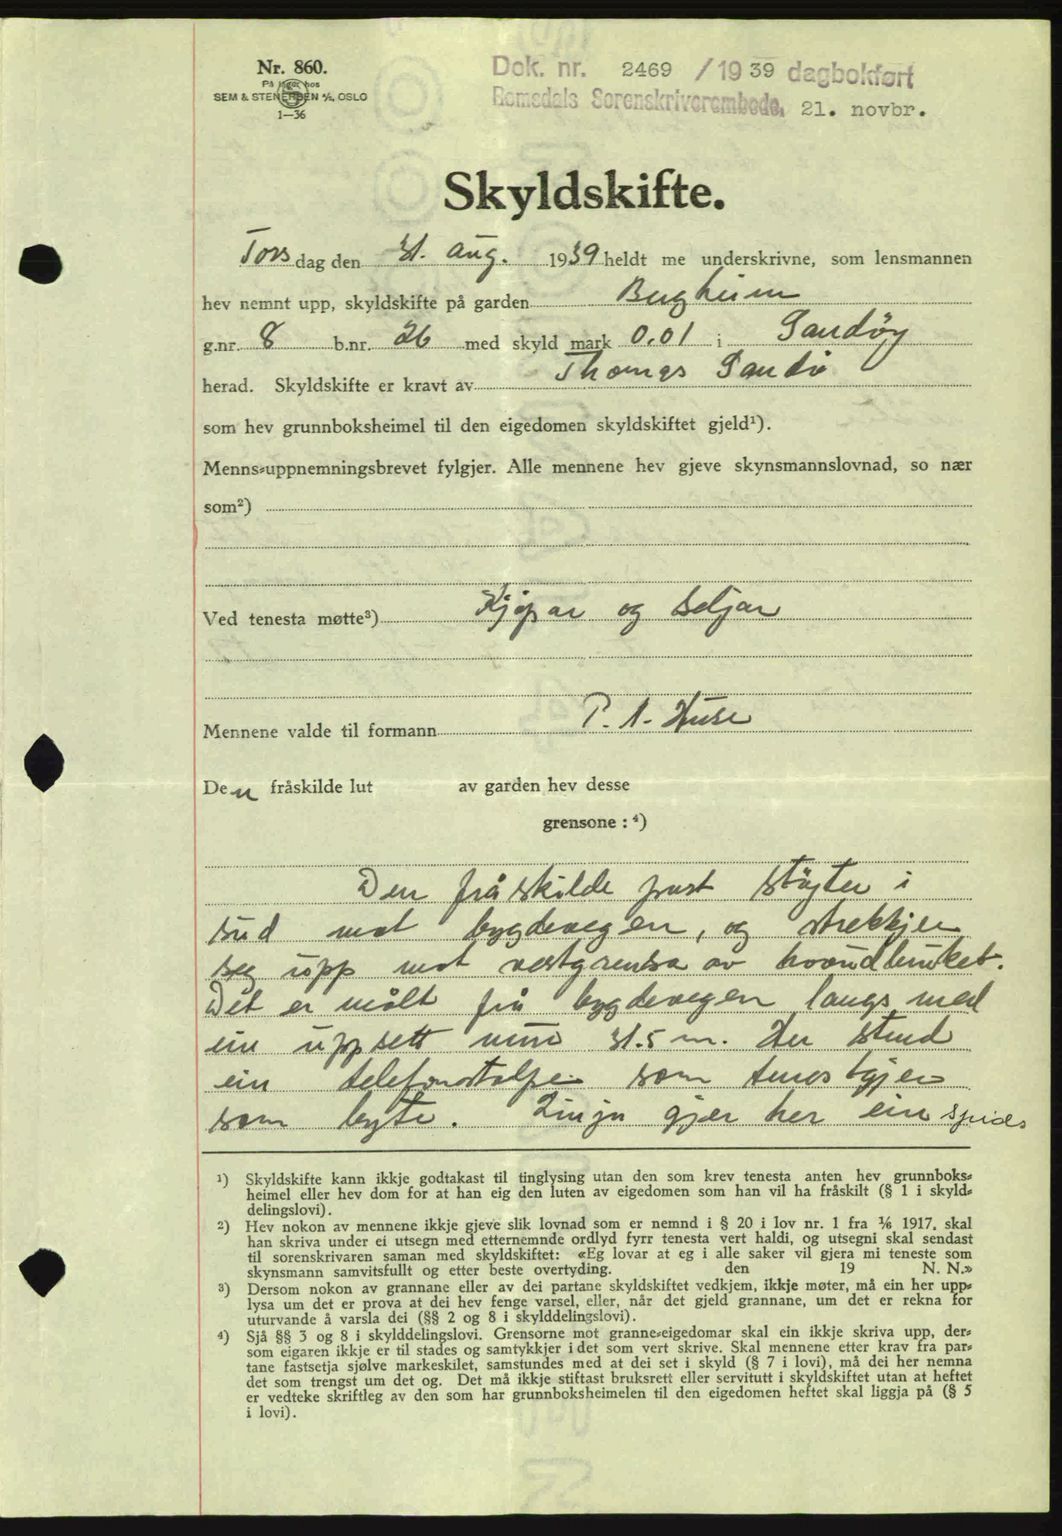 Nr. 860.
På lager hos
SEM & STENERSEN A/S, OSLO
1—36
Dok. nr. 2469 / 1939 dagbokført
Romsdals Sorenskriverembede, 21. novbr.
Skyldskifte.
Torsdag den 31. aug. 1939 heldt me underskrivne, som lensmannen
hev nemnt upp, skyldskifte på garden Bergheim
g.nr. 8 b.nr. 26 med skyld mark 0.01 i Sandøy
herad. Skyldskifte er kravt av Thomas Sandø
som hev grunnboksheimel til den eigedomen skyldskiftet gjeld¹).
Menns-uppnemningsbrevet fylgjer. Alle mennene hev gjeve skynsmannslovnad, so nær
som²)
Ved tenesta møtte³) Kjøpar og seljar
Mennene valde til formann P. A. Huse
Den fråskilde lut av garden hev desse
grensone : ⁴)
Den fråskilde part støyter i
sud mot bygdevegen, og strekkjer
seg upp mot vestgrensa av hovudbruket.
Det er målt frå bygdevegen langs med
ein uppsett mur 31.5 m. Her stend
ein telefonstolpe som
som byte. Linja gjer her ein spids
¹) Skyldskifte kann ikkje godtakast til tinglysing utan den som krev tenesta anten hev grunnboks-
heimel eller hev dom for at han eig den luten av eigedomen som han vil ha fråskilt (§ 1 i skyld-
delingslovi).
²) Hev nokon av mennene ikkje gjeve slik lovnad som er nemnd i § 20 i lov nr. 1 fra 1/6 1917, skal
han skriva under ei utsegn med etternemnde ordlyd fyrr tenesta vert haldi, og utsegni skal sendast
til sorenskrivaren saman med skyldskiftet: «Eg lovar at eg i alle saker vil gjera mi teneste som
skynsmann samvitsfullt og etter beste overtyding. den 19 N. N.»
³) Dersom nokon av grannane eller av dei partane skyldskiftet vedkjem, ikkje møter, må ein her upp-
lysa um det er prova at dei hev fenge varsel, eller, når det gjeld grannane, um det er rekna for
uturvande å varsla dei (§§ 2 og 8 i skylddelingslovi).
⁴) Sjå §§ 3 og 8 i skylddelingslovi. Grensorne mot granne-eigedomar skal ein ikkje skriva upp, der-
som eigaren ikkje er til stades og samtykkjer i det som vert skrive. Skal mennene etter krav fra par-
tane fastsetja sjølve markeskilet, samstundes med at dei set i skyld (§ 7 i lovi), må dei her nemna
det som trengst um det og. Det må ikkje stiftast bruksrett eller servitutt i skyldskiftet utan at heftet
er vedteke skriftleg av den som har grunnboksheimelen til den eigedomen heftet skal liggja på (§ 5
i lovi).